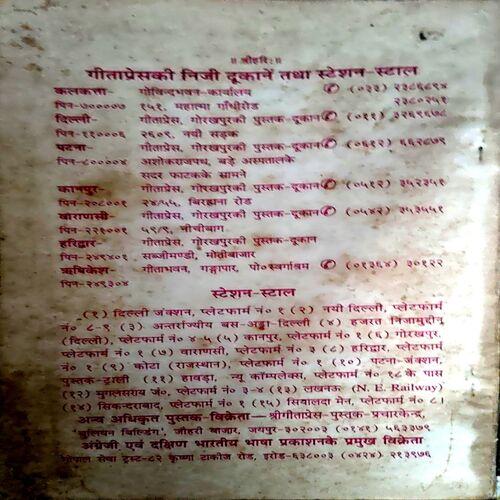 ॥ श्रीहरिः ॥
गीताप्रेसकी निजी दूकानें तथा स्टेशन-स्टाल
कलकत्ता- गोविन्दभवन-कार्यालय ✆ (०३३) २३८६८९४
पिन-७००००७ १५१, महात्मा गाँधीरोड २३८०२५१
दिल्ली- गीताप्रेस, गोरखपुरकी पुस्तक-दूकान ✆ (०११) ३२६९६७८
पिन-११०००६ २६०९, नयी सड़क
पटना- गीताप्रेस, गोरखपुरकी पुस्तक-दूकान ✆ (०६१२) ६६२८७९
पिन-८००००४ अशोकराजपथ, बड़े अस्पतालके
सदर फाटकके सामने
कानपुर- गीताप्रेस, गोरखपुरकी पुस्तक-दूकान ✆ (०५१२) ३५२३५१
पिन-२०८००१ २४/५५, बिरहाना रोड
वाराणसी- गीताप्रेस, गोरखपुरकी पुस्तक-दूकान ✆ (०५४२) ३५३५५१
पिन-२२१००१ ५९/९, नीचीबाग
हरिद्वार- गीताप्रेस, गोरखपुरकी पुस्तक-दूकान
पिन-२४९४०१ सब्जीमण्डी, मोतीबाजार
ऋषिकेश- गीताभवन, गङ्गापार, पो०स्वर्गाश्रम ✆ (०१३६४) ३०१२२
पिन-२४९३०४
स्टेशन-स्टाल
(१) दिल्ली जंक्शन, प्लेटफार्म नं० १ (२) नयी दिल्ली, प्लेटफार्म
नं० ८-९ (३) अन्तर्राज्यीय बस-अड्डा-दिल्ली (४) हजरत निजामुद्दीन
(दिल्ली), प्लेटफार्म नं० ४-५ (५) कानपुर, प्लेटफार्म नं० १ (६) गोरखपुर,
प्लेटफार्म नं० १ (७) वाराणसी, प्लेटफार्म नं० ३ (८) हरिद्वार, प्लेटफार्म
नं० १ (९) कोटा (राजस्थान), प्लेटफार्म नं० १ (१०) पटना-जंक्शन,
पुस्तक-ट्राली (११) हावड़ा, न्यू कॉम्प्लेक्स, प्लेटफार्म नं० १८ के पास
(१२) मुगलसराय जं०, प्लेटफार्म नं० ३-४ (१३) लखनऊ (N. E. Railway)
(१४) सिकन्दराबाद, प्लेटफार्म नं० १ (१५) सियालदा मेन, प्लेटफार्म नं० ८।
अन्य अधिकृत पुस्तक-विक्रेता—श्रीगीताप्रेस-पुस्तक-प्रचारकेन्द्र,
'बुलियन बिल्डिंग' जौहरी बाजार, जयपुर-३०२००३ (०१४१) ५६३३७९
अंग्रेजी एवं दक्षिण भारतीय भाषा प्रकाशनके प्रमुख विक्रेता
गोपाल सेवा ट्रस्ट-८२ कृष्णा टाकीज रोड, इरोड-६३८००३ (०४२४) २१३९७६